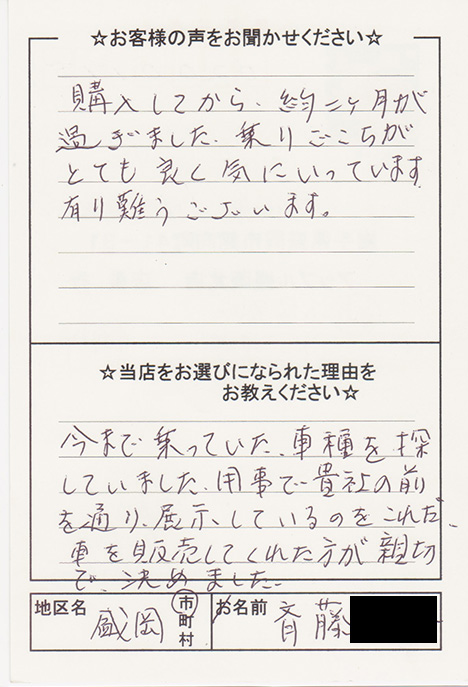 ☆お客様の声をお聞かせください☆
購入してから、約二ヶ月が
過ぎました。乗りごこちが
とても良く気にいっています。
有り難うございます。
☆当店をお選びになられた理由を
お教えください☆
今まで乗っていた、車種を探
していました。用事で貴社の前
を通り、展示しているのをこれだ、
車を販売してくれた方が親切
で、決めました。
地区名 盛岡 市町村 お名前 斉藤